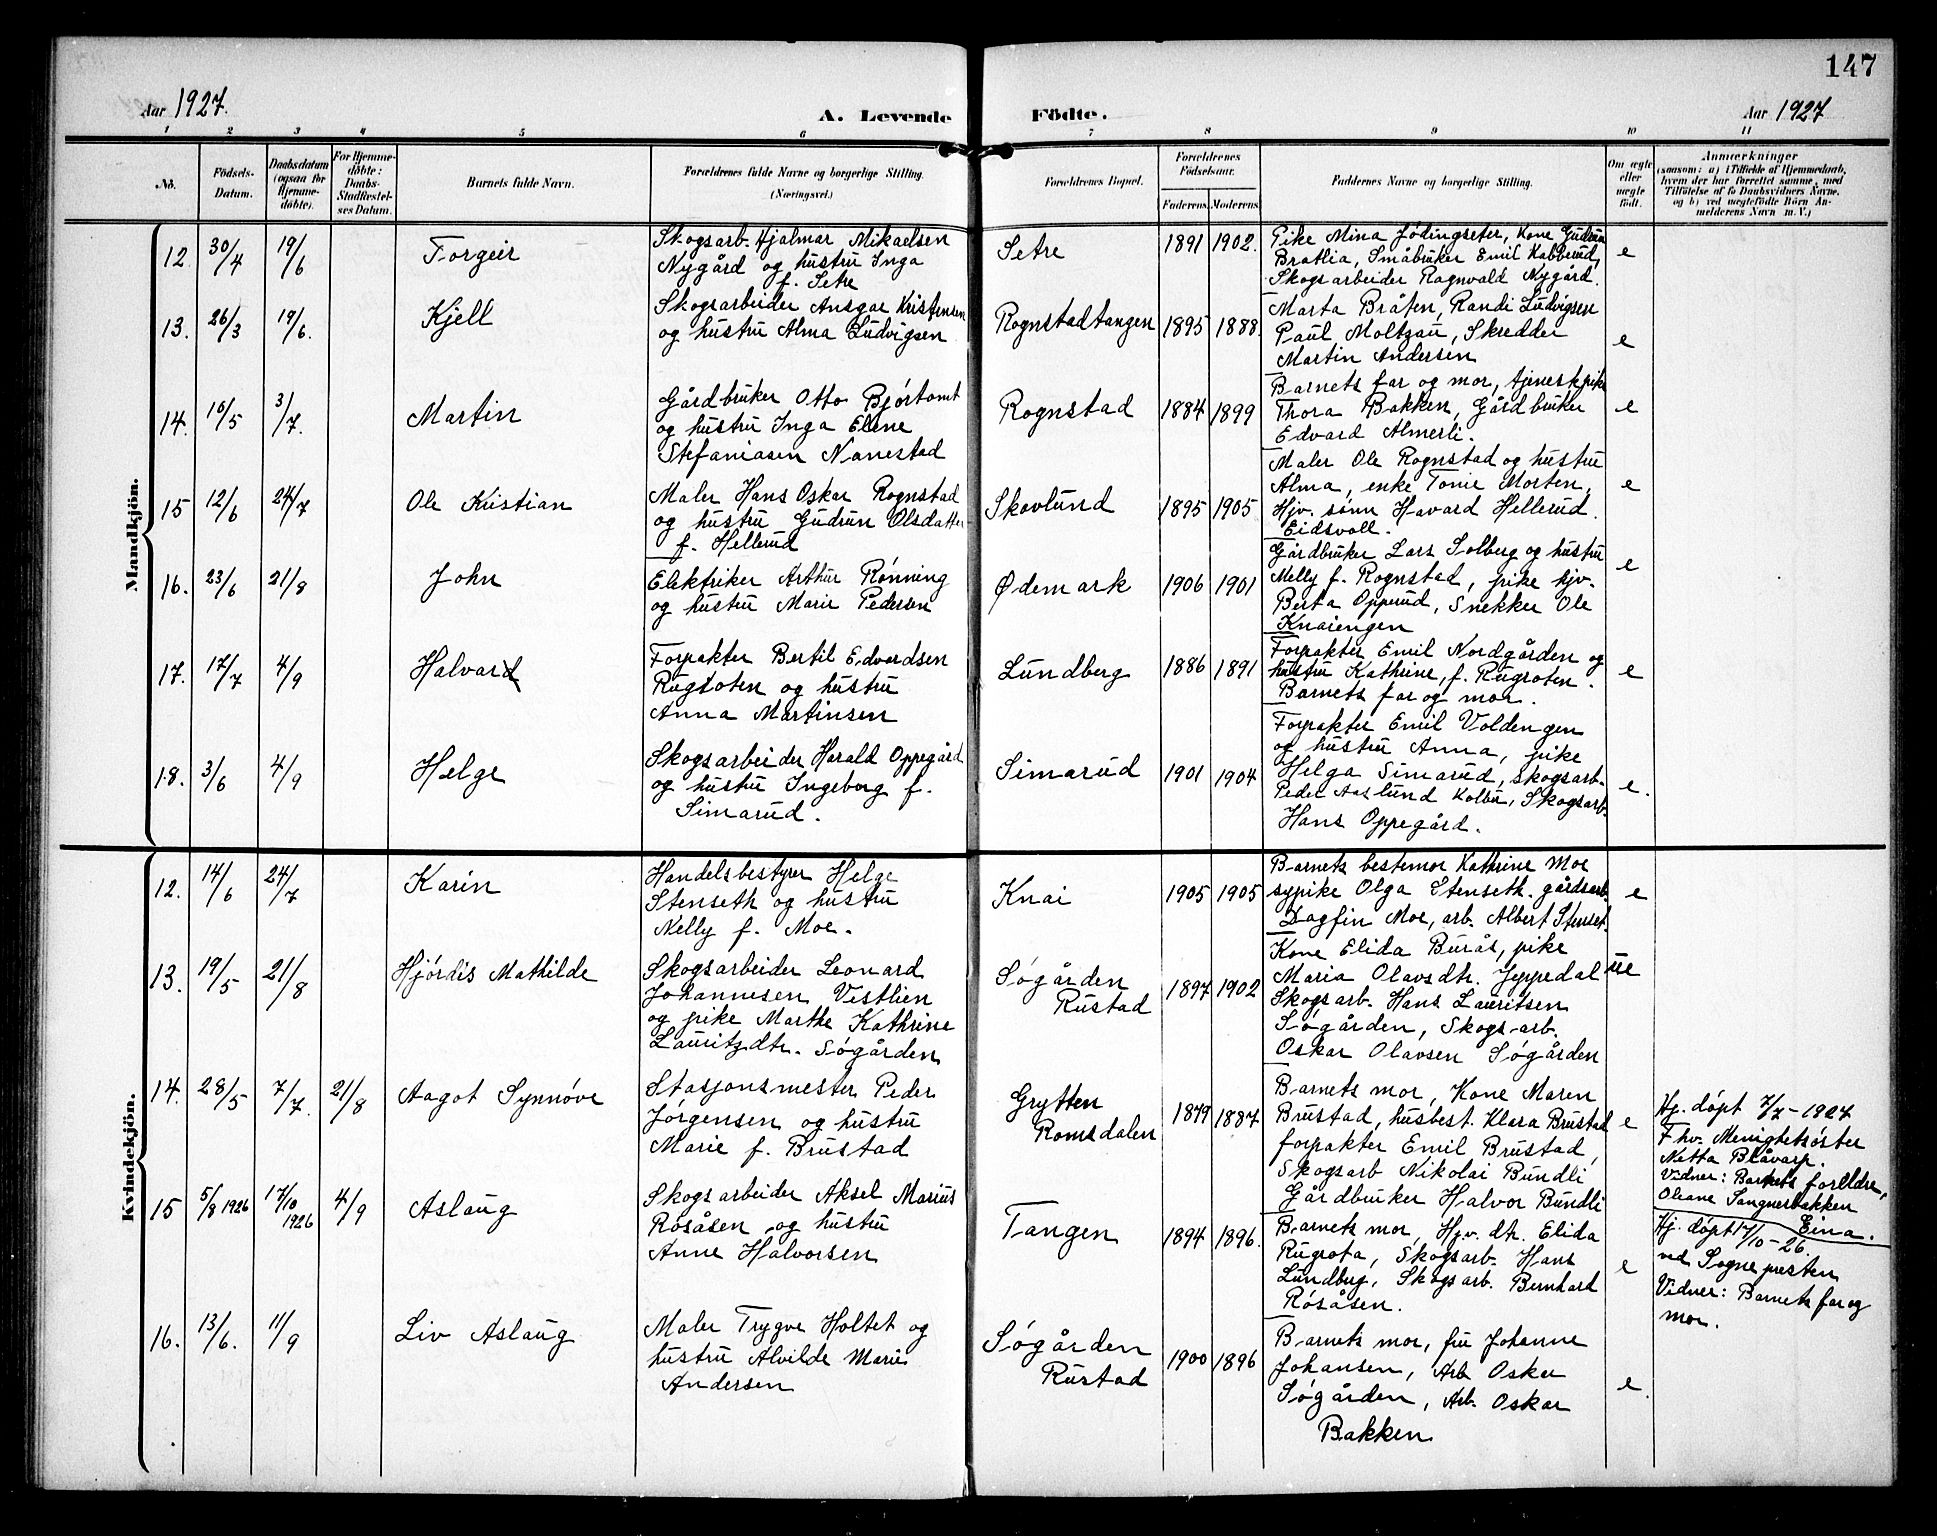 147
Aar 1927.
A. Levende Födte.
Aar 1927
1 2 3 4 5 6 7 8 9 10 11
No.
Födsels-
Datum.
Daabsdatum
(ogsaa for
Hjemme-
döbte).
For Hjemme-
döbte:
Daabs-
Stadfæstel-
ses Datum.
Barnets fulde Navn.
Forældrenes fulde Navne og borgerlige Stilling.
(Næringsvei.)
Forældrenes Bopæl.
Forældrenes
Födselsaar.
Faderens. Moderens.
Faddernes Navne og borgerlige Stilling.
Om ægte
eller
uægte
födt.
Anmærkninger
(saasom: a) i Tilfælde af Hjemmedaab,
hvem der har forrettet samme, med
Tilföielse af to Daabsvidners Navne,
og b) ved uægtefödte Börn An-
melderens Navn m. V.)
Mandkjön.
12. 30/4 19/6 Torgeir
Skogsarb. Hjalmar Mikaelsen
Nygård og hustru Inga
f. Setre
Setre 1891 1902.
Pike Mina Jødingseter, Kone Gudrun
Bratlia, Småbruker Emil Kabberud,
Skogsarbeider Ragnvald Nygård.
e
13. 26/3 19/6. Kjell
Skogsarbeider Ansgar Kristensen
og hustru Alma Ludvigsen
Rognstadtangen 1895 1888.
Marta Bråten, Randi Ludvigsen
Paul Moltzau, Skredder
Martin Andersen
e
14. 10/5 3/7. Martin
Gårdbruker Otto Bjørtomt
og hustru Inga Eline
Stefaniasen Nanestad
Rognstad 1884 1899
Barnets far og mor, tjenestpike
Thora Bakken, Gårdbruker
Edvard Almerli.
e
15 12/6 24/7 Ole Kristian
Maler Hans Oskar Rognstad
og hustru Gudrun Olsdatter
f. Hellerud
Skovlund 1895 1905
Maler Ole Rognstad og hustru
Alma, enke Tonie Morten,
Hjv. sønn Havard Hellerud.
Eidsvoll.
e
16. 23/6 21/8 John
Elektriker Arthur Rønning
og hustru Marie Pedersen
Ødemark 1906 1901
Gårdbruker Lars Solberg og hustru
Melly f. Rognstad, pike hjv.
Berta Opperud, Snekker Ole
Knaiengen
e
17. 17/7 4/9 Halvard
Forpakter Bertil Edvardsen
Rugroten og hustru
Anna Martinsen
Lundberg 1886 1891
Forpakter Emil Nordgården og
hustru Kathrine, f. Rugroten.
Barnets far og mor.
e
18. 3/6 4/9 Helge
Skogsarbeider Harald Oppegård
og hustru Ingeborg f.
Simarud.
Simarud 1901 1904
Forpakter Emil Voldengen
og hustru Anna, pike
Helga Simarud, skogsarb.
Peder Aaslund Kolbu, Skogsarb.
Hans Oppegård.
e.
Kvindekjön.
12. 14/6 24/7 Karin
Handelsbestyrer Helge
Stenseth og hustru
Nelly f. Moe.
Knai 1905 1905
Barnets bestemor Kathrine Moe
sypike Olga Stenseth. gårdsarb.
Dagfin Moe, arb. Albert Stenset.
e
13. 19/5 21/8 Hjørdis Mathilde
Skogsarbeider Leonard
Johannesen Vestlien
og pike Marthe Kathrine
Lauritzdtr. Søgården
Søgården
Rustad
1897 1902
Kone Elida Burås, pike
Maria Olavsdtr. Jeppedal
Skogsarb. Hans Lauritsen
Søgården, Skogs-arb.
Oskar Olavsen Søgården
ue
14. 28/5 7/7. 21/8 Aagot Synnøve
Stasjonsmester Peder
Jørgensen og hustru
Marie f. Brustad
Grytten
Romsdalen
1879 1887
Barnets mor, Kone Maren
Brustad, husbest. Klara Brustad
forpakter Emil Brustad,
Skogsarb Nikolai Bundli
Gårdbruker Halvor Bundli
e
Hj. døpt 7/7-1927
F hv. Menighetsøster
Netta Blåvarp.
Vidner: Barnets foreldre,
Oleane Sangnesbakken
Eina.
15 5/8 1926 17/10 1926 4/9 Aslaug
Skogsarbeider Aksel Marius
Røsåsen og hustru
Anne Halvorsen
Tangen 1894 1896.
Barnets mor, Hjv. dtr. Elida
Rugrota, Skogsarb. Hans
Lundberg, Skogsarb. Bernhard
Røsåsen.
e
Hj. døpt 17/10-26.
ved Sognepresten
Vidner: Barnets far og
mor.
16. 13/6. 11/9 Liv Aslaug
Maler Trygve Holtet og
hustru Alvilde Marie
Andersen
Søgården
Rustad
1900 1896
Barnets mor, fru Johanne
Johansen, Arb Oskar
Søgården, Arb. Oskar
Bakken
e.